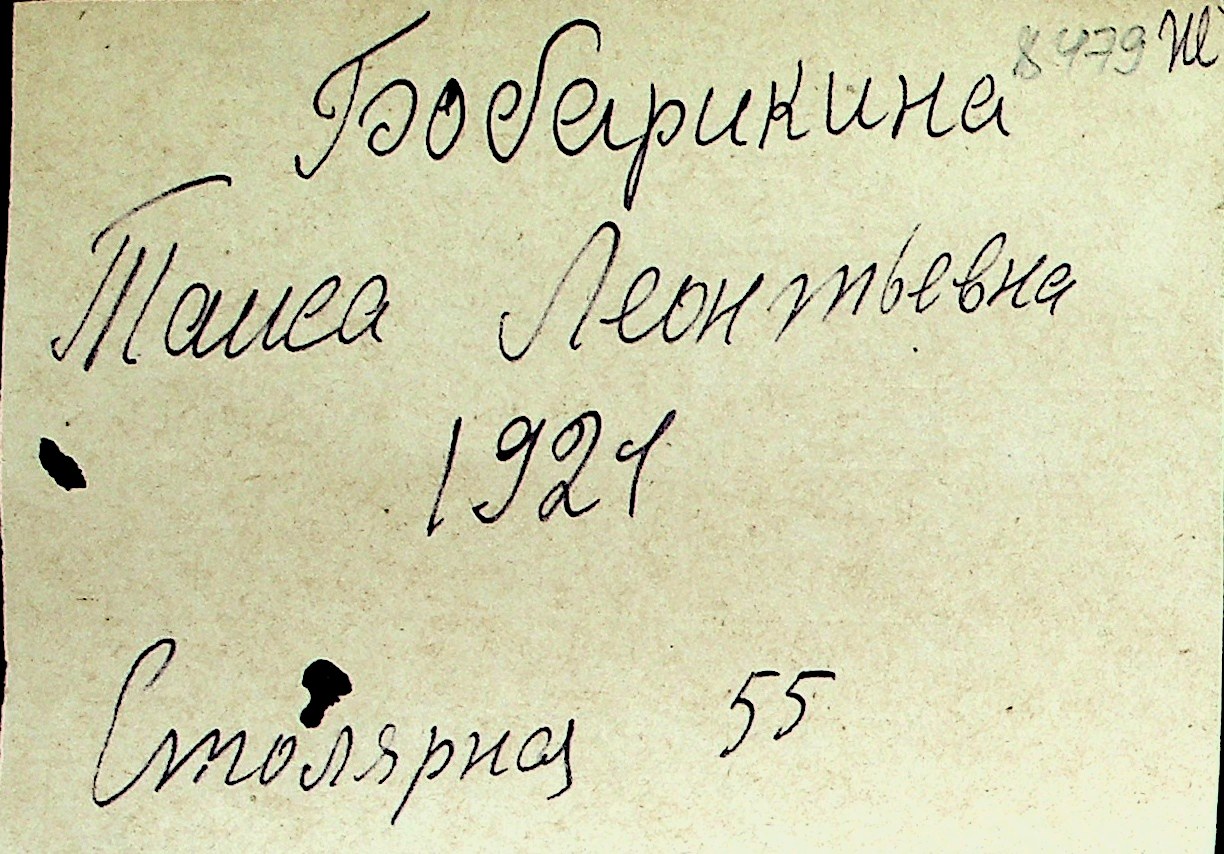 8479
Бобарикина
Таиса Леонтьевна
1921
Столярная 55